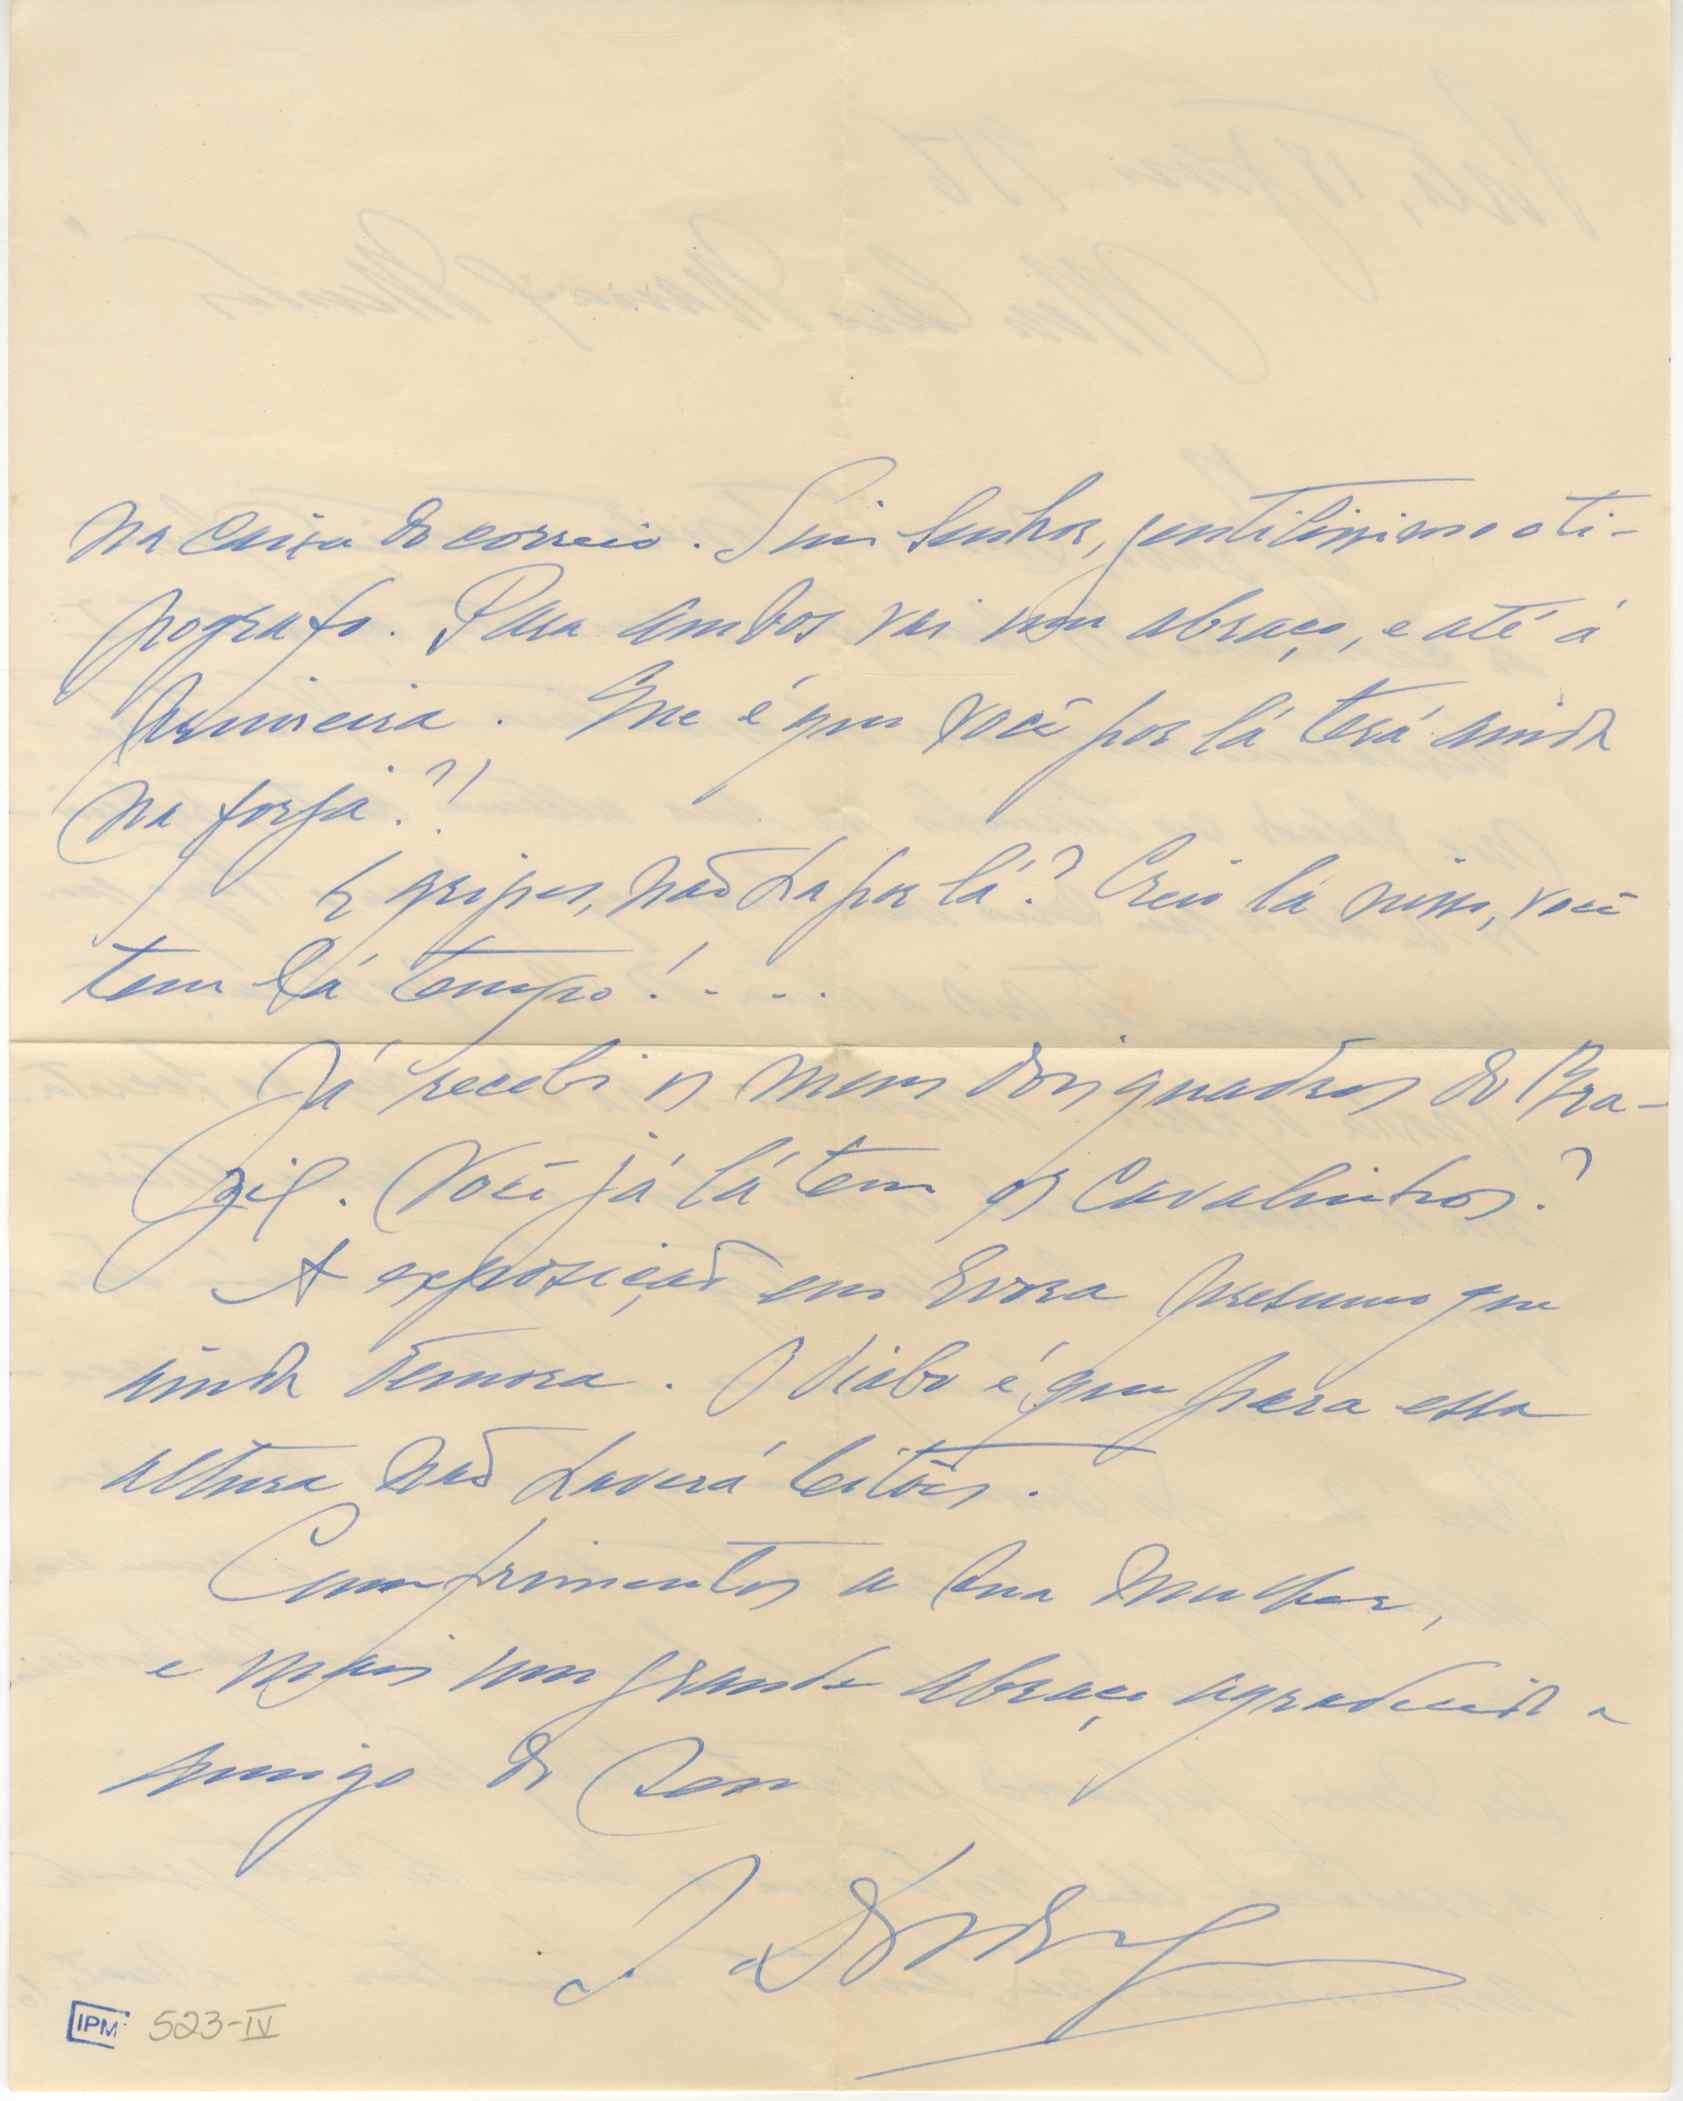 na caixa do correio. Sim senhor, gentilissimo o ti-
pografo. Para ambos vai um abraço, e até á
Que é que você por lá terá ainda
na forja?!
E gripes, não ha por lá? Creio lá nisso, você
tem lá tempo! . . .
Já recebi os meus dois quadros do Bra-
zil. Você já lá tem os Cavalinhos?
A exposição em Evora presumo que
ainda demora. O diabo é que para essa
altura não haverá leitões.
Cumprimentos a sua mulher,
e mais um grande abraço agradecido e
amigo do seu
IPM 523-IV